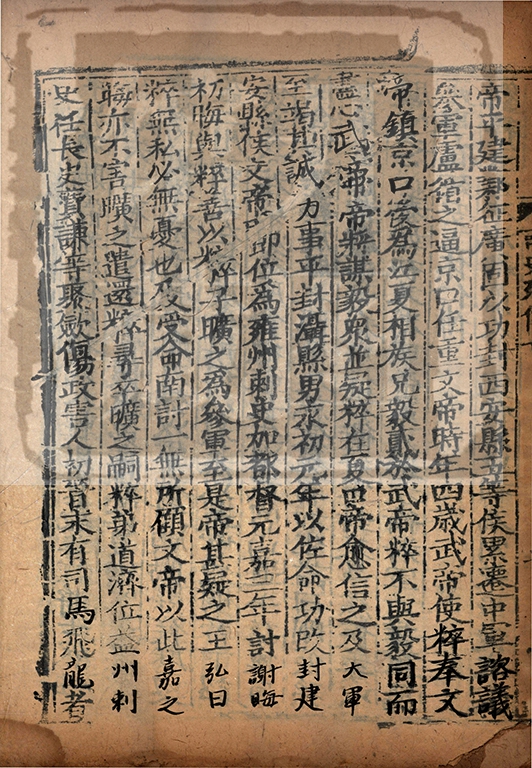 帝平建鄴征廣固以功封西安縣五等侯累遷中軍諮議
參軍盧循之逼京口任重文帝時年四歲武帝使粹奉文
帝鎮京口後爲江夏相族兄毅貳於武帝粹不與毅同而
盡心武帝帝粹謀毅衆並疑粹在夏口帝愈信之及大軍
至竭其誠力事平封灄縣男永初元年以佐命功改封建
安縣侯文帝即位爲雍州刺史加都督元嘉三年討謝晦
初晦與粹善以粹子曠之爲參軍至是帝甚疑之王弘曰
粹無私必無憂也及受命南討一無所顧文帝以此嘉之
晦亦不害曠之遣還粹尋卒曠之嗣粹弟道濟位益州刺
史任長史費謙等聚斂傷政害人初晉末有司馬飛龍者